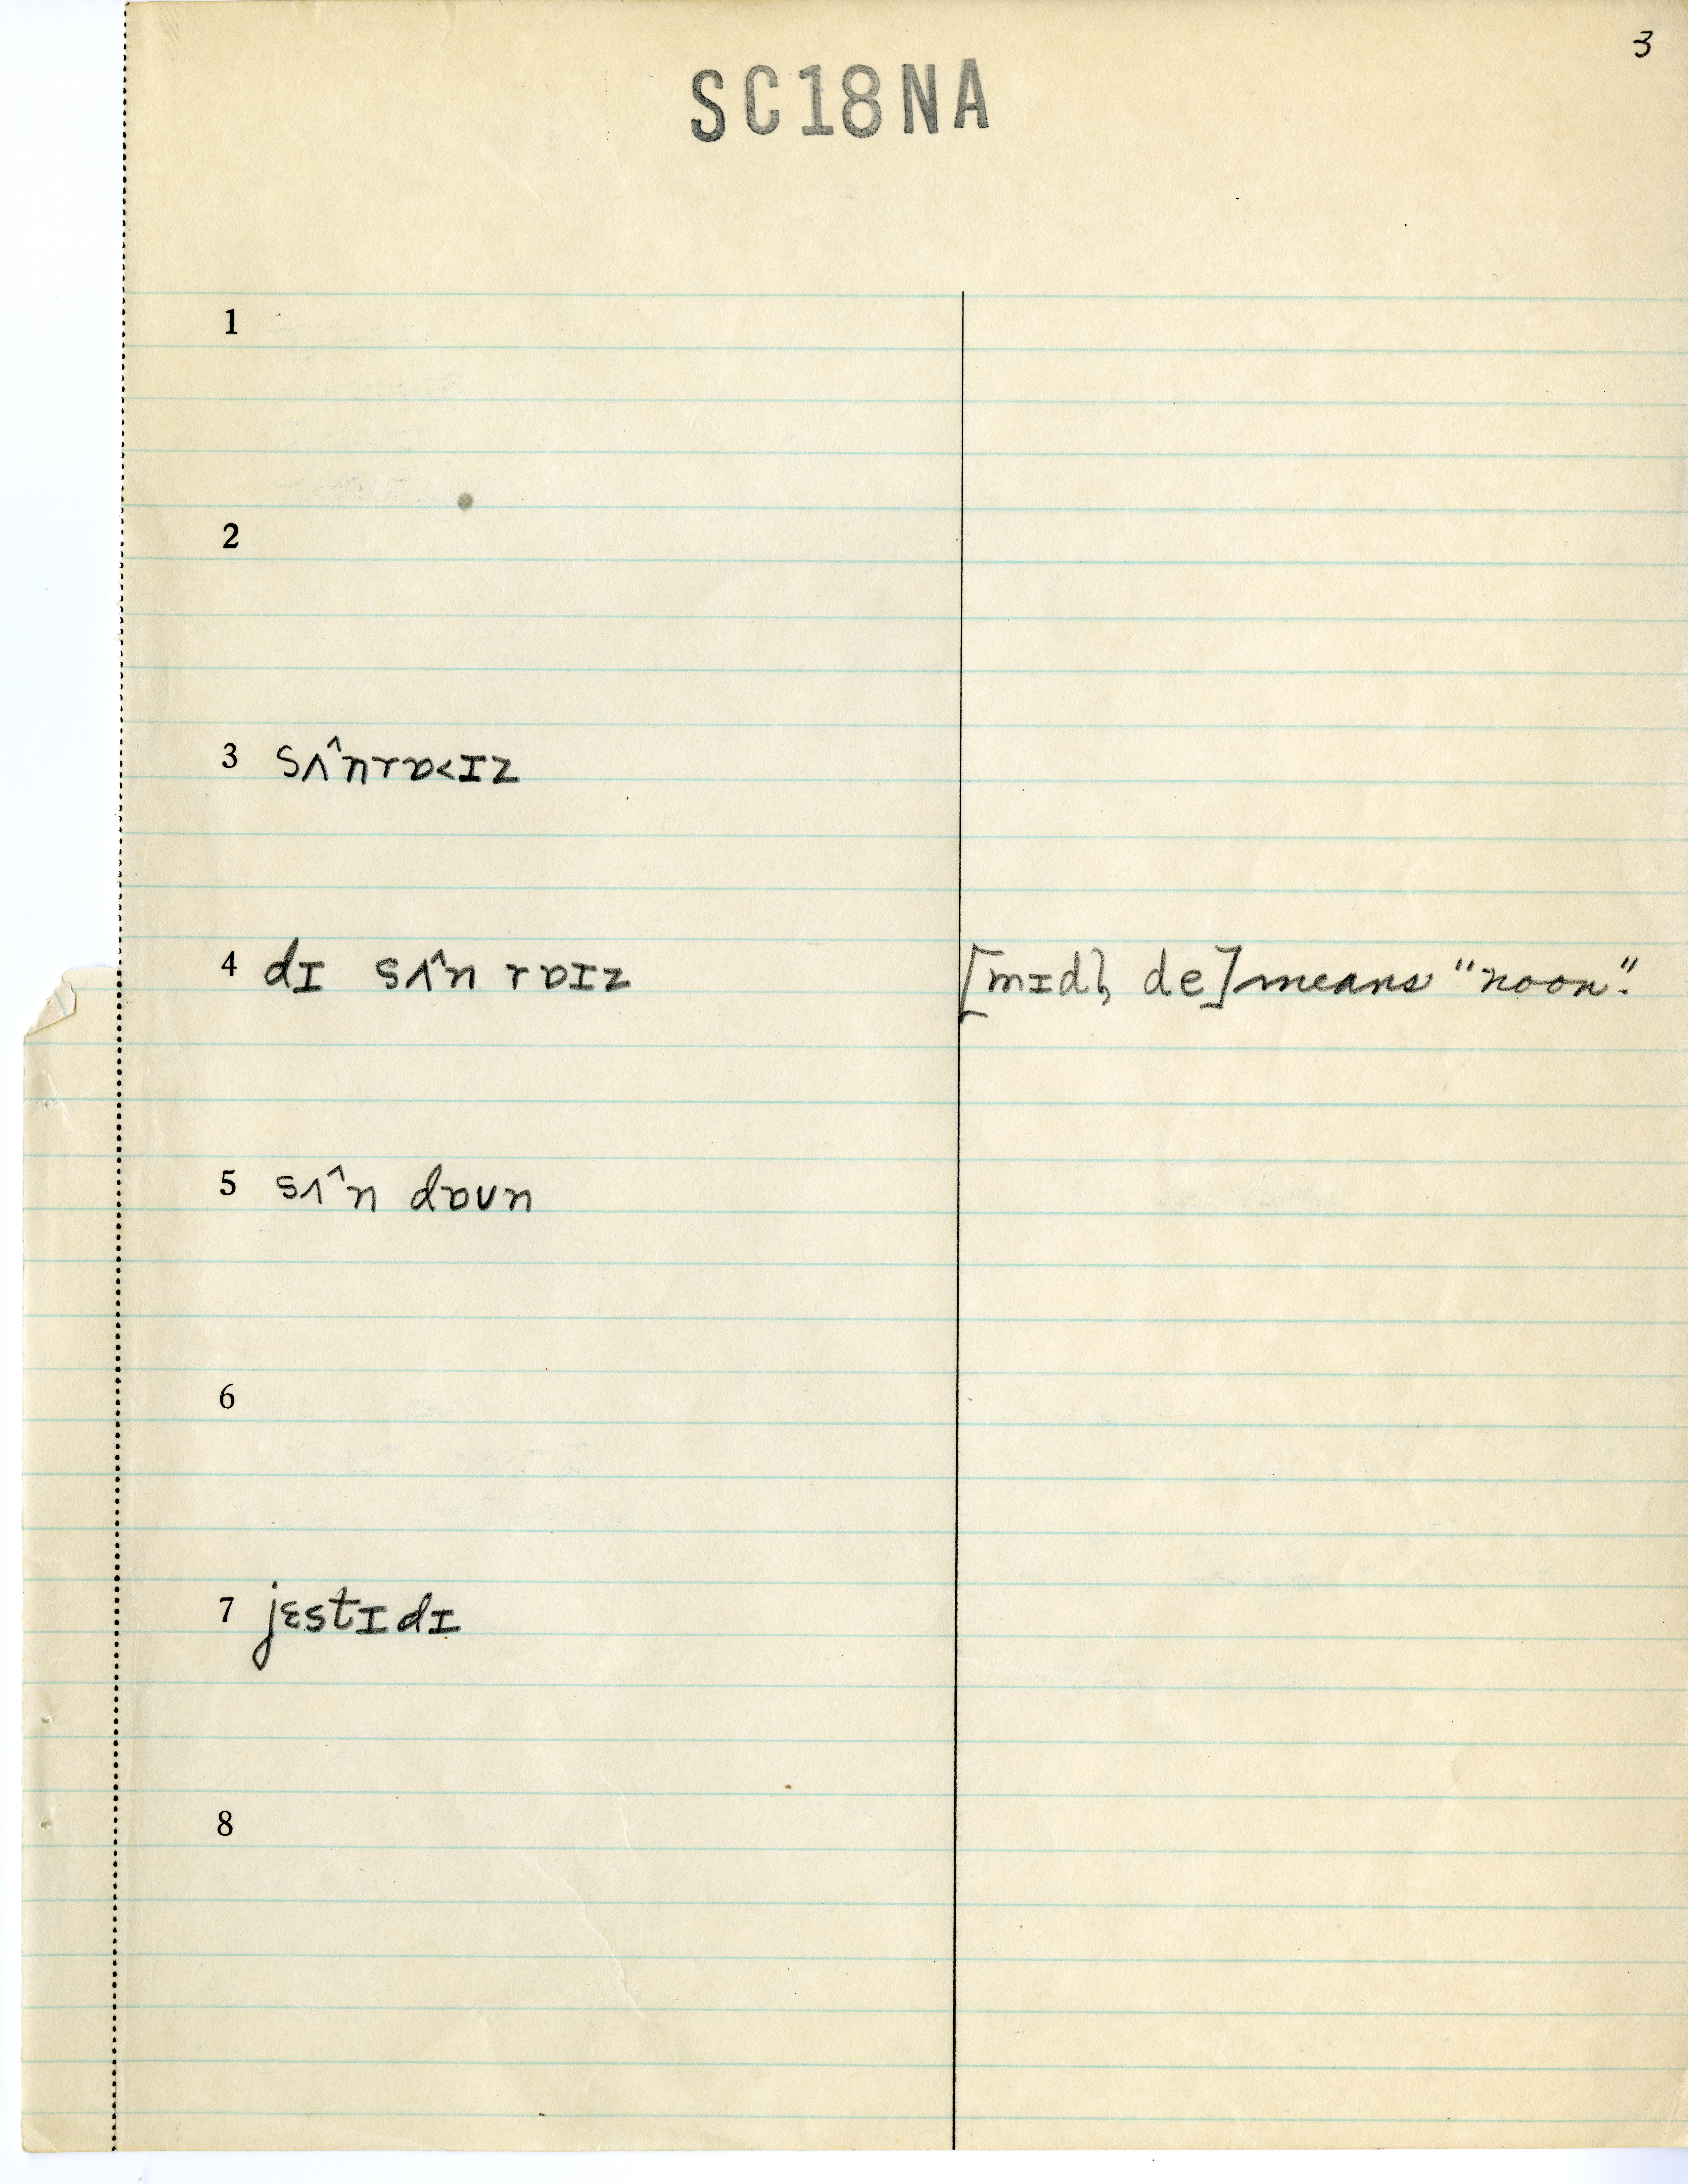 3
SC18NA
1
2
3 sʌ^nrɒ<ɪz
4 dɪ sʌ^n rɒɪz [mɪdl̩ de] means "noon".
5 sʌ^n dɒʊn
6
7 jɛstɪdɪ
8